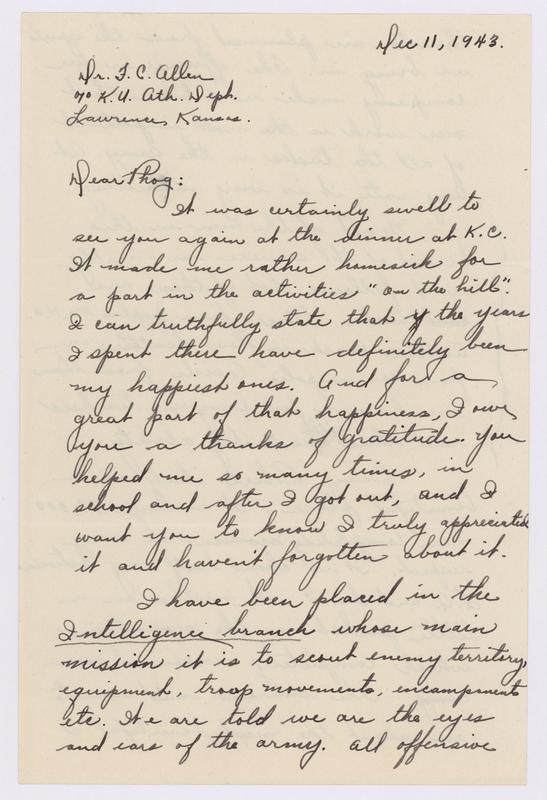 Dec 11, 1943.
Dr. F. C. Allen
% K.U. Ath. Deph.
Lawrence, Kansas.
Dear Phog:
It was certainly swell to
see you again at the dinner at K.C.
It made me rather homesick for
a part in the activities "on the hill".
I can truthfully state that the years
I spent there have definitely been
my happiest ones. And for a
great part of that happiness, I owe
you a thanks of gratitude. You
helped me so many times, in
school and after I got out, and I
want you to know I truly appreciated
it and haven't forgotten about it.
I have been placed in the
Intelligence branch whose main
mission it is to scout enemy territory,
equipment, troop movements, encampments
etc. We are told we are the eyes
and ears of the army. All offensive